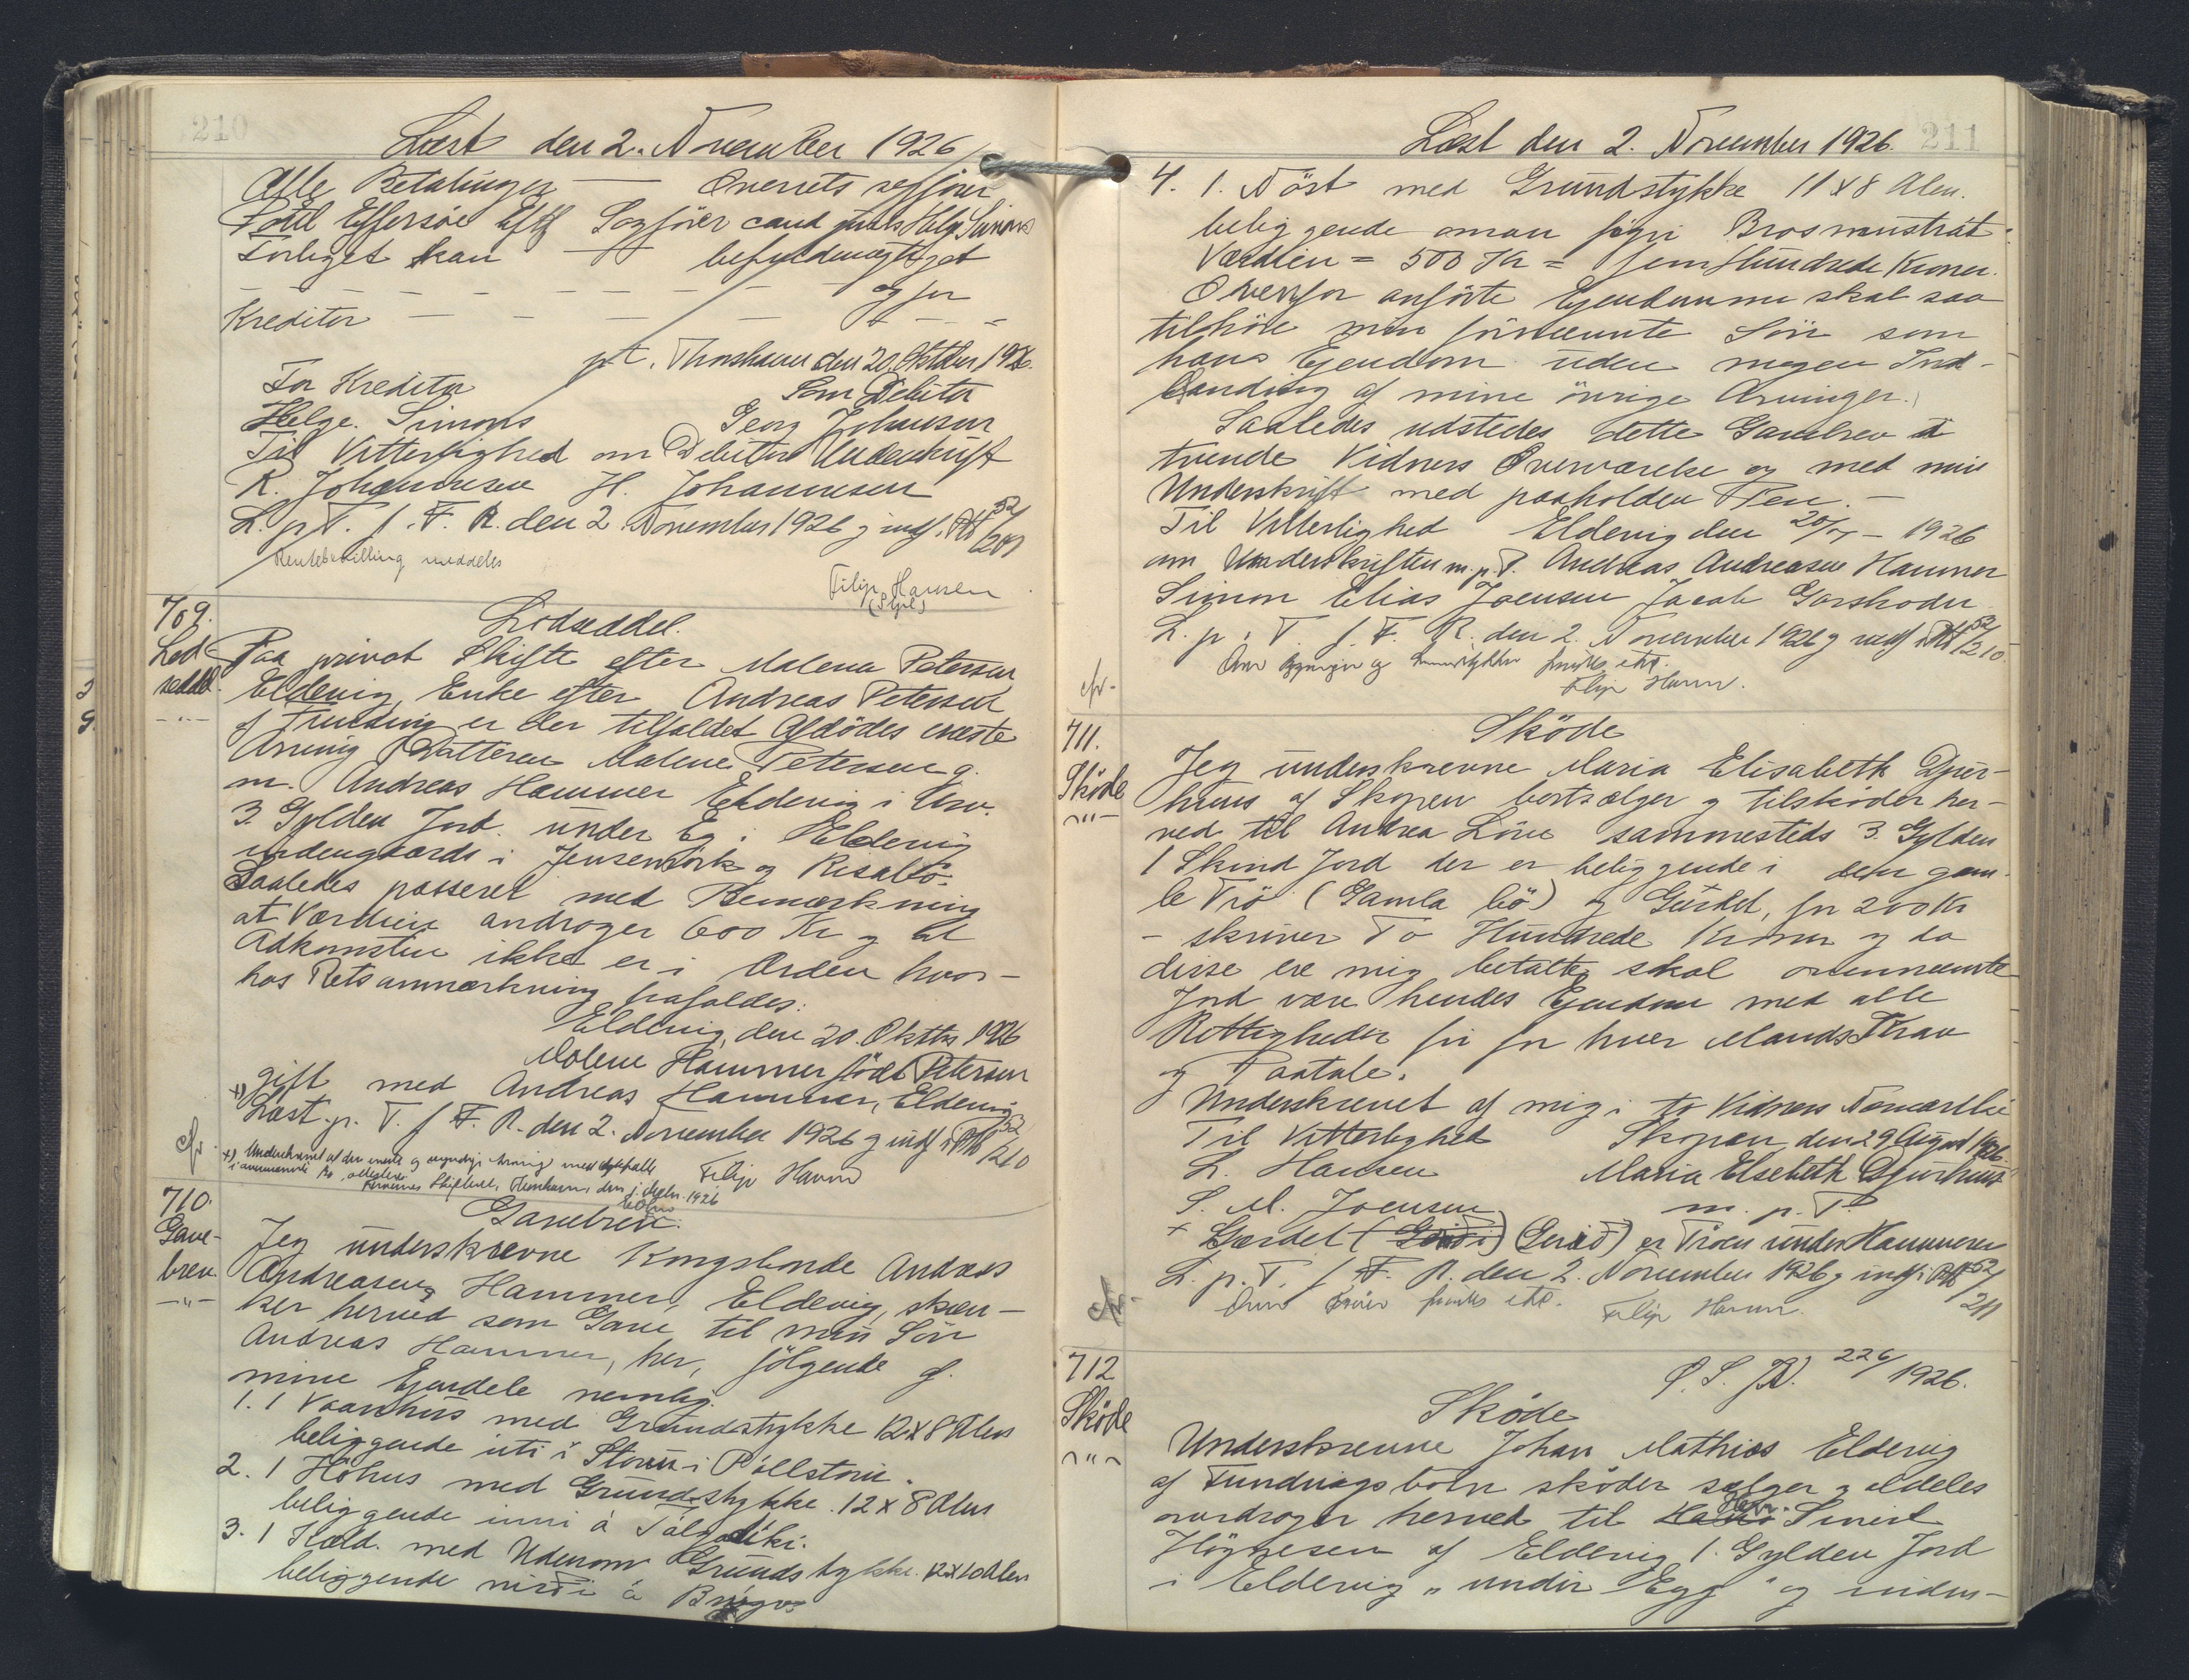 210
Læst den 2. November 1926
Alle Betalinger — Overrets sagfører
Poul Effersøe Eftf Sagfører cand. juris Helge Simons
Forliget kan — befuldmægtiget
og for
Kreditor
pt. Thorshavn den 20. Oktober 1926.
For Kreditor Som Debitor
Helge Simons Georg Johansen
Til Vitterlighed om Debitors Underskrift
R. Johannesen H. Johannesen
L. p. T. f. F. R. den 2 November 1926 g indf. i Pb 52/209
Rentebevilling meddeles
Filip Hansen
709.
Lod-
seddel
Lodseddel.
Paa privat Skifte efter Malena Petersen
Eldevig, Enke efter Andreas Petersen
af Funding er der tilfaldet Afdødes eneste
Arving Datteren Malene Petersen g.
m. Andreas Hammer Eldevig i Arv.
3 Gylden Jord under Eg i Eldevig
indengaards i Jensenvørk og Risaltö.
Saaledes passeret med Bemærkning
at Værdien androger 600 Kr og at
Adkomsten ikke er i Orden hvor-
hos Retsanmærkning frafaldes.
Eldevig, den 20. Oktbr 1926
Malene Hammer født Petersen
gift med Andreas Hammer, Eldevig
x) Læst p. T. f F. R. den 2. November 1926 g indf i Pb 52/210
cfr.
x) Underskrevet af den eneste og myndige Arving
Færøernes Skifteret, Thorshavn, den 1926
Filip Hansen
710.
Gave-
brev.
Gavebrev.
Jeg underskrevne Kongsbonde Andreas
Andreasen Hammer, Eldevig, skæn-
ker herved som Gave til min Søn
Andreas Hammer, her, følgende af
mine Ejendele nemlig.
1. 1 Vaanhus med Grundstykke 12x8 Alen
beliggende uti i Stovu i Pallstovu.
2. 1 Höhus med Grundstykke 12 x 8 Alen
beliggende inni á
3. 1 Kæld. med Udenom Grundstykke. 12x10 Alen
beliggende niri á
211
Læst den 2. November 1926.
4. 1. Nöst med Grundstykke 11 x 8 Alen.
beliggende oman fyri Brosmustrát.
Værdien = 500 Kr = fem Hundrede Kroner.
Ovenfor anførte Ejendomme skal saa
tilhøre min førnævnte Søn som
hans Ejendom uden nogen Ind-
blanding af mine øvrige Arvinger.
Saaledes udstedes dette Gavebrev i
tvende Vidners Overværelse og med min
Underskrift med paaholden Pen. —
Til Vitterlighed Eldevig den 20/ - 1926
om Underskriften m. p. P. Andreas Andreasen Hammer
Simon Elias Joensen Jacob Gaardsodn
L. p. i T. f. F. R. den 2. November 1926 g indf i Pb 52/210.
cfr.
Om Bygninger og Grundstykker savnes etc.
Filip Hansen.
711.
Sköde
Sköde
Jeg underskrevne Maria Elisabeth Djur-
huus af Skopen bortsælger g tilskøder her-
ved til Andrea Löve sammesteds 3 Gylden
1 Skind Jord der er beliggende i den gam-
le Trö (Gamla bö) g Gærdet, for 200 Kr
- skriver To Hundrede Kroner g da
disse ere mig betalte skal ovennævnte
Jord være hendes Ejendom med alle
Rettigheder fri for hver Mands Krav
og Paatale.
Underskrevet af mig i to Vidners Nærværelse
Til Vitterlighed Skopen, den 29 August 1926.
L. Hansen Maria Elsebeth Djurhuus
S. M. Joensen m. p. P.
x Gærdet (Gerið) er Tröen under Hammeren
L. p. T. f. F. R. den 2. November 1926 g indf i Pb 52/211
cfr.
Om Tröen savnes etc. Filip Hansen.
712
Sköde
226/1926.
Sköde
Underskrevne Johan Mathias Eldevig
af Fundingsbotn skøder sælger g aldeles
overdrager herved til Sivert
Högnesen af Eldevig 1. Gylden Jord
i Eldevig "undir Egg" og inden-